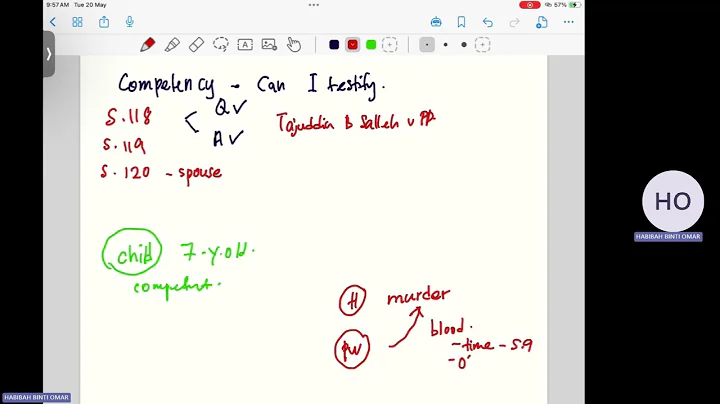 9:57 AM Tue 20 May
57%
Competency - Can I testify.
S.118
Q✓
A✓
Tajuddin B Salleh v PP
S.119
S.120 - spouse
child 7-y.old.
competent.
H murder
PW
blood.
- time - S.9
HO
HABIBAH BINTI OMAR
HABIBAH BINTI OMAR